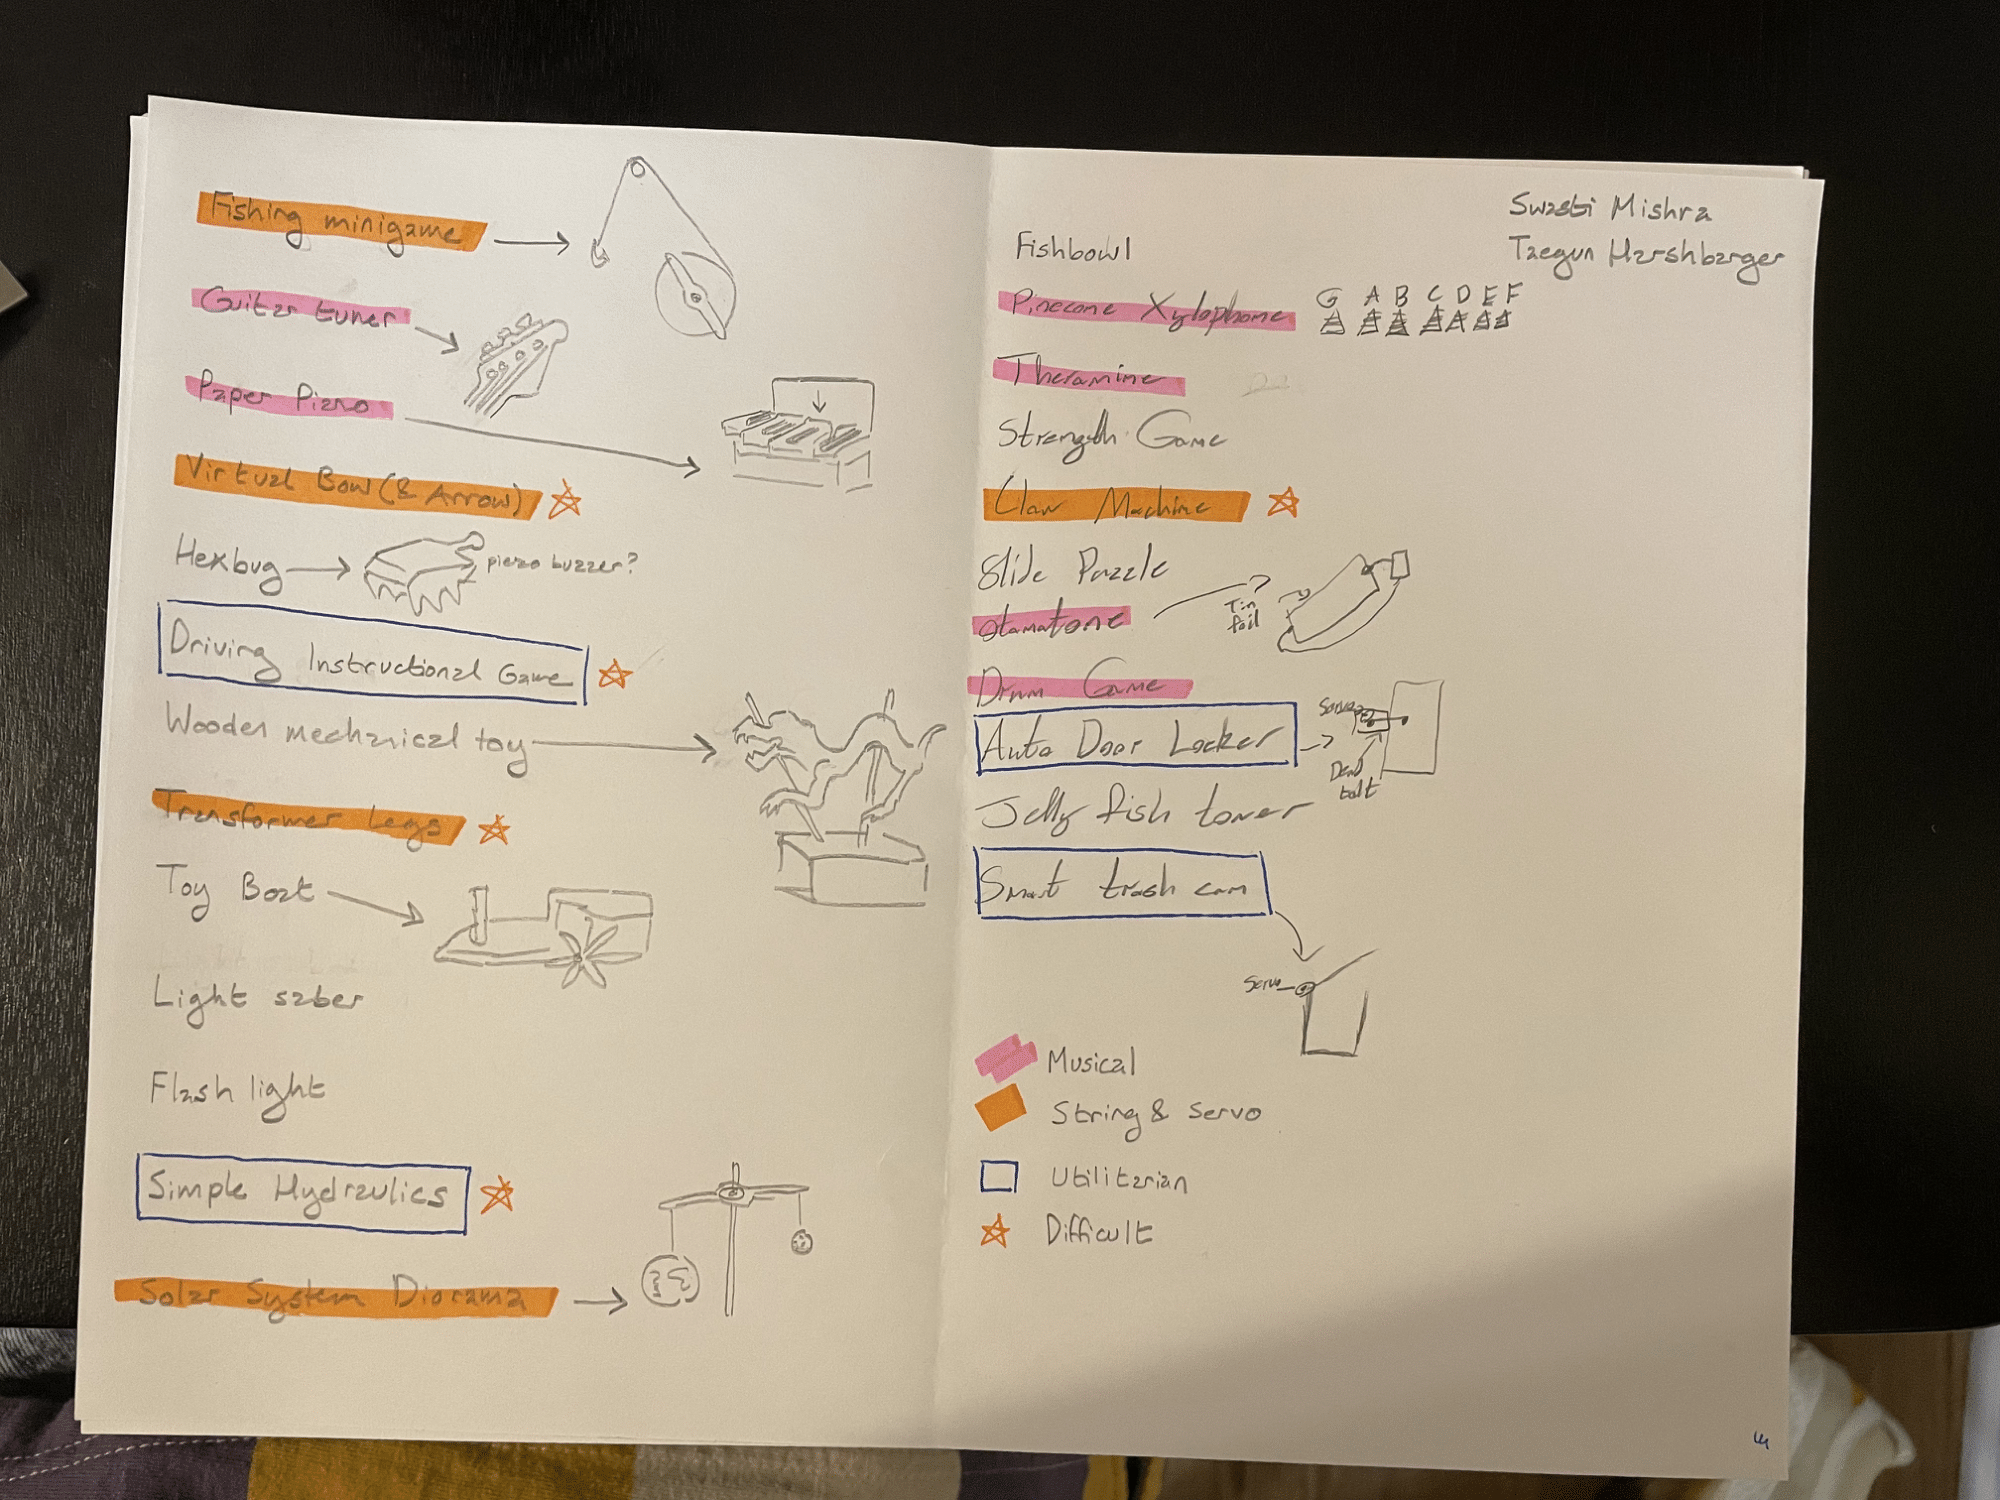 Fishing minigame
Guitar tuner
Paper Piano
Virtual Bow (& Arrow)
Hexbug
piezo buzzer?
Driving Instructional Game
Wooden mechanical toy
Transformer Legs
Toy Boat
Light saber
Flash light
Simple Hydraulics
Solar System Diorama
Swasti Mishra
Taegun Harshbarger
Fishbowl
Pinecone Xylophone
G A B C D E F
Theramine
Strength Game
Claw Machine
Slide Puzzle
Otamatone
Tin
foil
Drum Game
Auto Door Locker
Servo
Dead
bolt
Jelly fish tower
Smart trash can
Servo
Musical
String & Servo
Utilitarian
Difficult